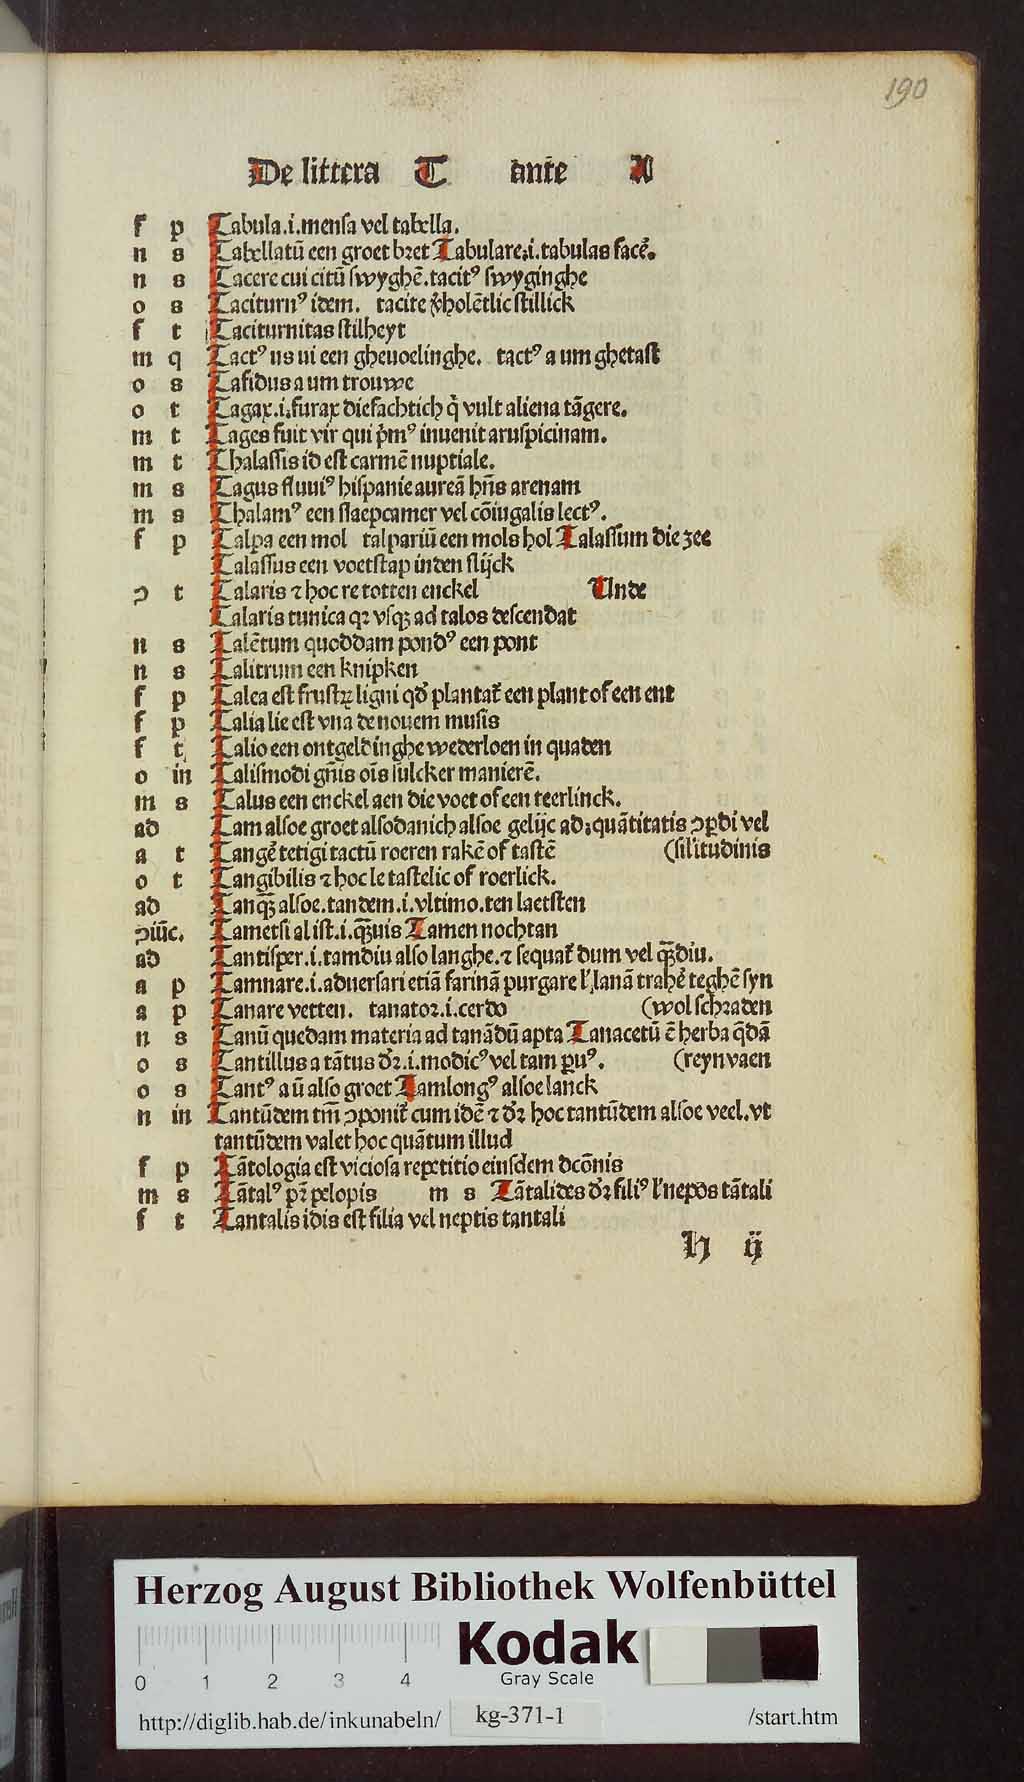 190
De littera T ante A
f p Tabula.i.mensa vel tabella.
n s Tabellatū een groet bret Tabulare.i.tabulas facē.
n s Tacere cui citū swyghē.tacitꝰ swyginghe
o s Taciturnꝰ idem. tacite v̄holētlic stillick
f t Taciturnitas stilheyt
m q Tactꝰ us ui een gheuoelinghe. tactꝰ a um ghetast
o s Tafidus a um trouwe
o t Tagax.i.furax diefachtich q̇ vult aliena tāgere.
m t Tages fuit vir qui p̄mꝰ inuenit aruspicinam.
m t Thalassis id est carmē nuptiale.
m s Tagus fluuiꝰ hispanie aureā hn̄s arenam
m s Thalamꝰ een slaepcamer vel cōiugalis lectꝰ.
f p Talpa een mol talpariū een mols hol Talassum die zee
Talassus een voetstap inden slijck
ɔ t Talaris ⁊ hoc re totten enckel Unde
Talaris tunica qꝛ vsqꝫ ad talos descendat
n s Talētum quoddam pondꝰ een pont
n s Talitrum een knipken
f p Talea est frustꝝ ligni qđ plantat᷑ een plant of een ent
f p Talia lie est vna de nouem musis
f t Talio een ontgeldinghe wederloen in quaden
o in Talismodi gn̄is oīs sulcker manierē.
m s Talus een enckel aen die voet of een teerlinck.
ad Tam alsoe groet alsodanich alsoe gelijc ad.quātitatis ɔꝑdi vel
a t Tangē tetigi tactū roeren rakē of tastē (sil'itudinis
o t Tangibilis ⁊ hoc le tastelic of roerlick.
ad Tanqꝫ alsoe.tandem.i.vltimo.ten laetsten
ɔiūc. Tametsi al ist.i.qꝫuis Tamen nochtan
ad Tantisper.i.tamdiu also langhe.⁊ sequat᷑ dum vel qꝫdiu.
a p Tamnare.i.aduersari etiā farinā purgare l' lanā trahē teghē syn
a p Tanare verten. tanatoꝛ.i.cerdo (wol schraden
n s Tanū quedam materia ad tanādū apta Tanacetū ē herba q̄dā
o s Tantillus a tātus dꝛ̄.i.modicꝰ vel tam ꝑuꝰ. (reynvaen
o s Tantꝰ a ū also groet Tamlongꝰ alsoe lanck
n in Tantūdem tm̄ ɔponit᷑ cum idē ⁊ dꝛ̄ hoc tantūdem alsoe veel.vt
tantūdem valet hoc quātum illud
f p Tātologia est viciosa repetitio eiusdem dcōnis
m s Tātalꝰ pꝛ̄ pelopis m s Tātalides dꝛ̄ filiꝰ l' nepos tātali
f t Tantalis idis est filia vel neptis tantali
h ij
Herzog August Bibliothek Wolfenbüttel
Kodak
Gray Scale
0 1 2 3 4
http://diglib.hab.de/inkunabeln/ kg-371-1 /start.htm